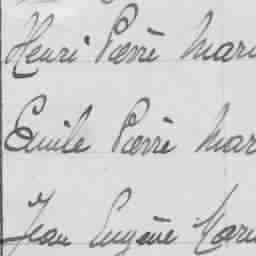 Henri Pierre Mari
Emile Pierre Mar
Jean Eugène Mari